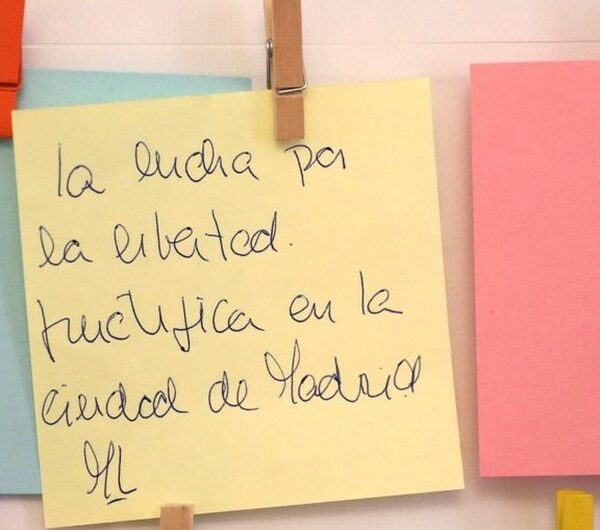 la lucha por
la libertad.
fructifica en la
ciudad de Madrid
ML